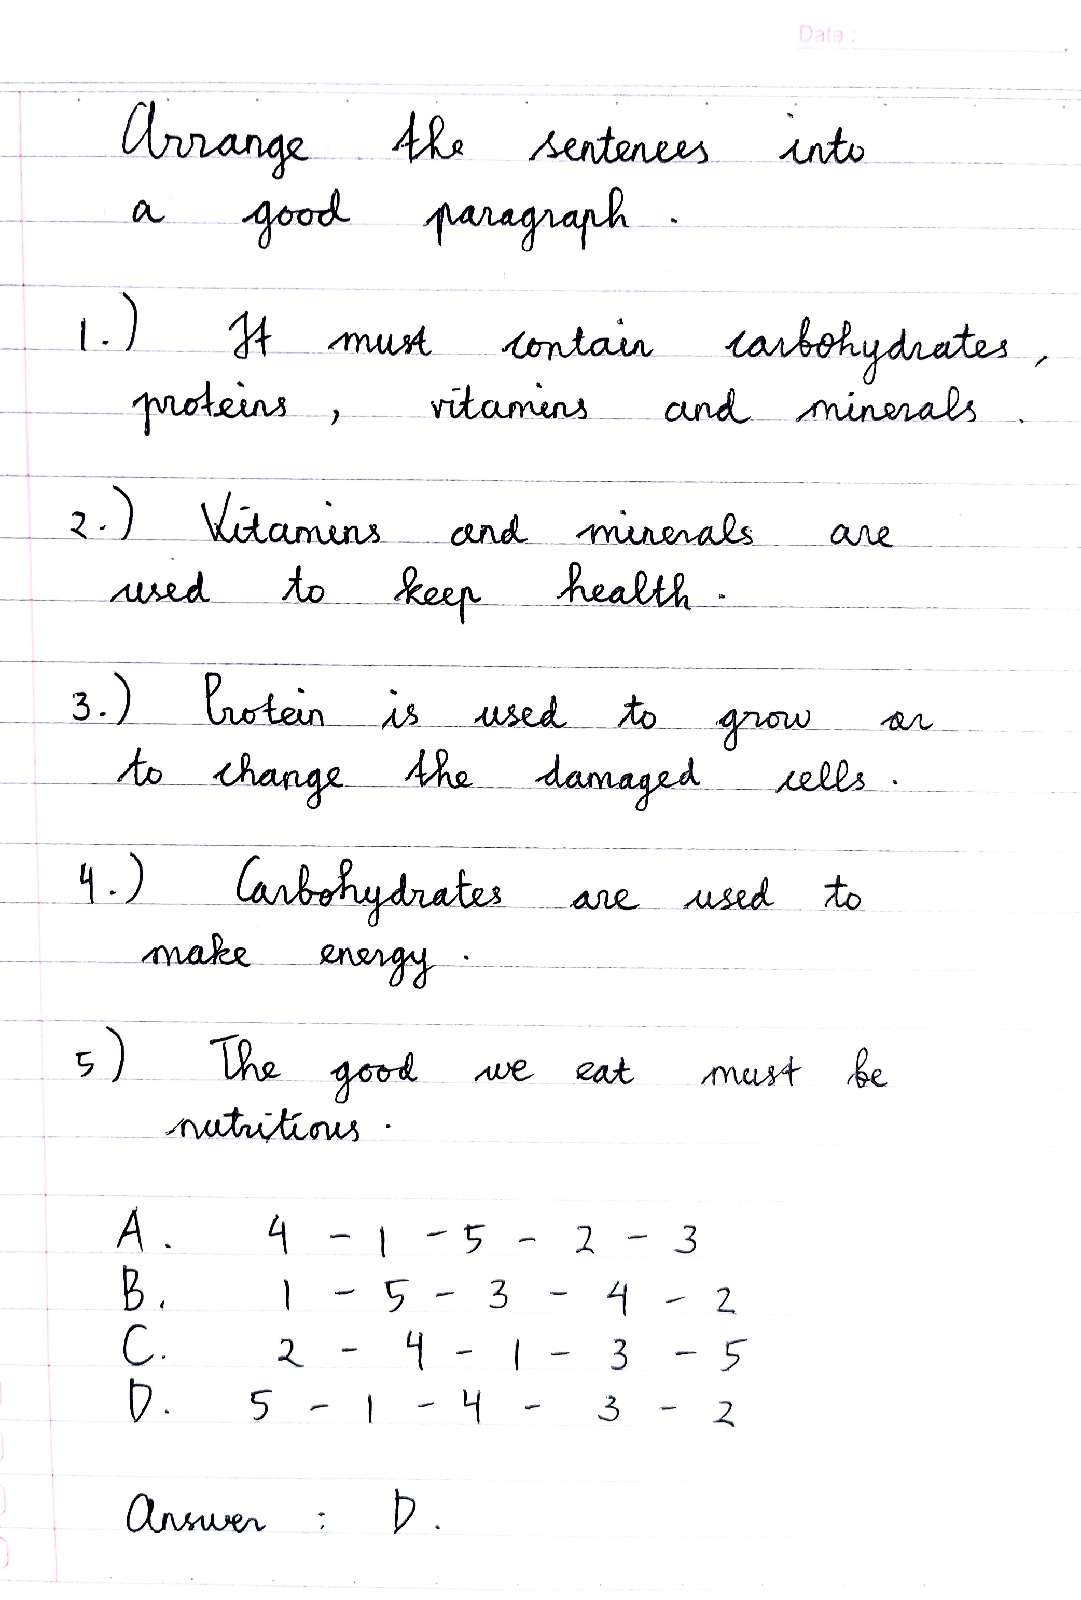 Date :
Arrange the sentences into
a good paragraph .
1.) It must contain carbohydrates ,
proteins , vitamins and minerals .
2.) Vitamins and minerals are
used to keep health .
3.) Protein is used to grow or
to change the damaged cells .
4.) Carbohydrates are used to
make energy .
5) The good we eat must be
nutritious .
A. 4 - 1 - 5 - 2 - 3
B. 1 - 5 - 3 - 4 - 2
C. 2 - 4 - 1 - 3 - 5
D. 5 - 1 - 4 - 3 - 2
Answer : D .